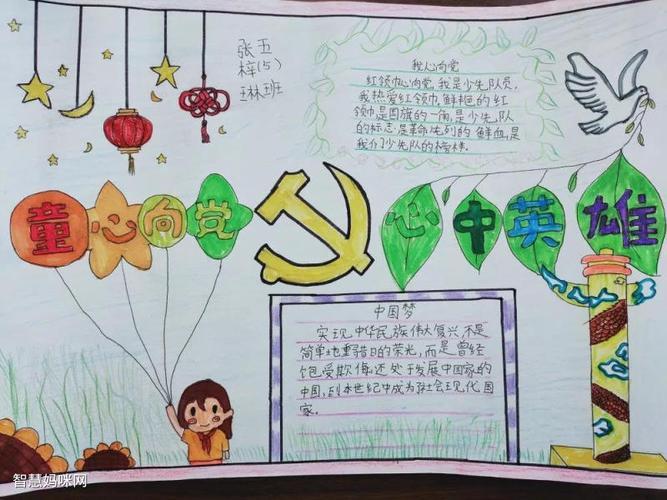 张五
梓(5)
琳班
我心向党
红领巾心向党,我是少先队员,
我热爱红领巾,鲜艳的红
领巾是国旗的一角,是少先队
的标志,是革命先烈的鲜血,是
我们少先队的榜样。
童心向党
心中英雄
中国梦
实现中华民族伟大复兴,不是
简单地重踏昔日的荣光,而是曾经
饱受欺侮,还处于发展中国家的
中国,到本世纪中成为社会现化国
家。
智慧妈咪网